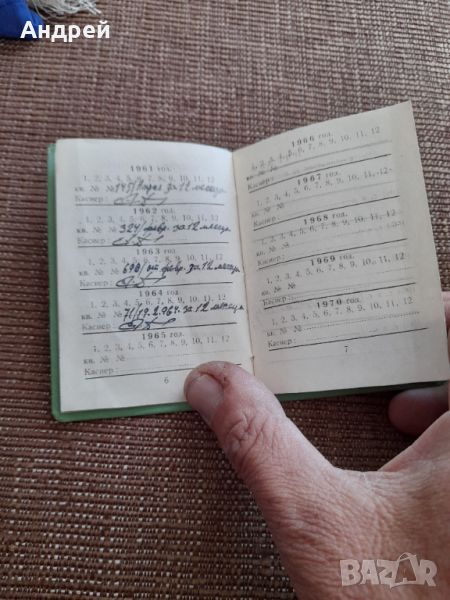 Андрей
1961 год.
1, 2, 3, 4, 5, 6, 7, 8, 9, 10, 11, 12
кв. № № 145/ за 12 месеца
Касиер:
1962 год.
1, 2, 3, 4, 5, 6, 7, 8, 9, 10, 11, 12
кв. № № 324/февр. за 12 месеца
Касиер:
1963 год.
1, 2, 3, 4, 5, 6, 7, 8, 9, 10, 11, 12
кв. № № 698/от февр. за 12 месец.
Касиер:
1964 год.
1, 2, 3, 4, 5, 6, 7, 8, 9, 10, 11, 12
кв. № № 71/19.2.964. за 12 месец.
Касиер:
1965 год.
1, 2, 3, 4, 5, 6, 7, 8, 9, 10, 11, 12
кв. № №
Касиер:
6
1966 год.
1, 2, 3, 4, 5, 6, 7, 8, 9, 10, 11, 12
кв. № №
Касиер:
1967 год.
1, 2, 3, 4, 5, 6, 7, 8, 9, 10, 11, 12
кв. № №
Касиер:
1968 год.
1, 2, 3, 4, 5, 6, 7, 8, 9, 10, 11, 12
кв. № №
Касиер:
1969 год.
1, 2, 3, 4, 5, 6, 7, 8, 9, 10, 11, 12
кв. № №
Касиер:
1970 год.
1, 2, 3, 4, 5, 6, 7, 8, 9, 10, 11, 12
кв. № №
Касиер:
7
BAZAR